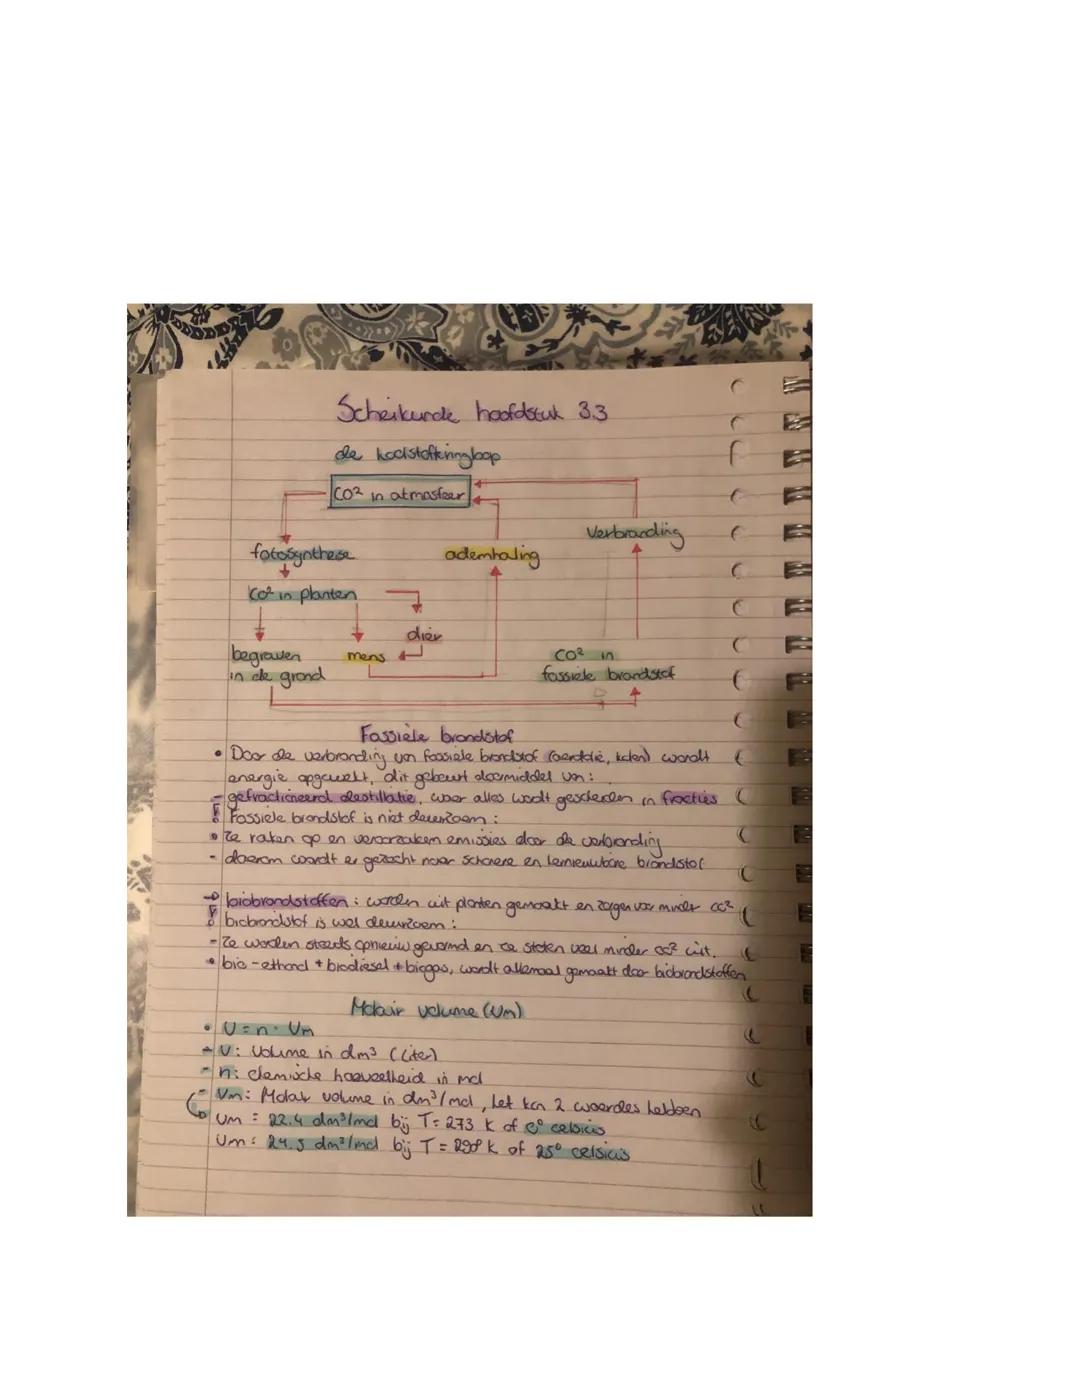 Scheikunde hoofdstuk 3.3
de koolstofkringloop
CO² in atmosfeer
Verbranding
fotosynthese
ademhaling
CO² in planten
dier
begraven
in de grond
mens
CO² in
fossiele brandstof
Fossiele brandstof
• Door de verbranding van fossiele brandstof (aardolie, kolen) wordt
energie opgewekt, dit gebeurt doormiddel van:
- gefractioneerd destillatie, waar alles wordt gescheiden in fracties
! Fossiele brandstof is niet duurzaam:
• Ze raken op en veroorzaken emissies door de verbranding
- daarom wordt er gezocht naar schonere en hernieuwbare brandstof
→ biobrandstoffen: worden uit planten gemaakt en zorgen voor minder co²
! biobrandstof is wel duurzaam:
- Ze worden steeds opnieuw gevormd en ze stoten veel minder co² uit.
• bio-ethanol + biodiesel + biogas, wordt allemaal gemaakt door biobrandstoffen
Molair volume (Vm)
• V = n · Vm
- V: Volume in dm³ (Liter)
- n: chemische hoeveelheid in mol
- Vm: Molair volume in dm³/mol, het kan 2 waardes hebben
Vm = 22.4 dm³/mol bij T = 273 K of 0° celsius
Vm = 24.5 dm³/mol bij T = 298 K of 25° celsius